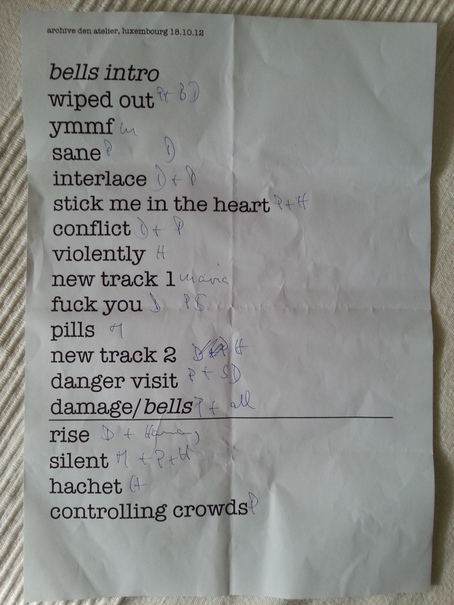 archive den atelier, luxembourg 18.10.12
bells intro
wiped out P+ BD
ymmf m
sane P D
interlace D + P
stick me in the heart P+H
conflict D + P
violently H
new track 1 maria
fuck you D
pills M
new track 2 H
danger visit P + SD
damage/bells P + all
rise D +
silent M + P+H
hachet
controlling crowds P